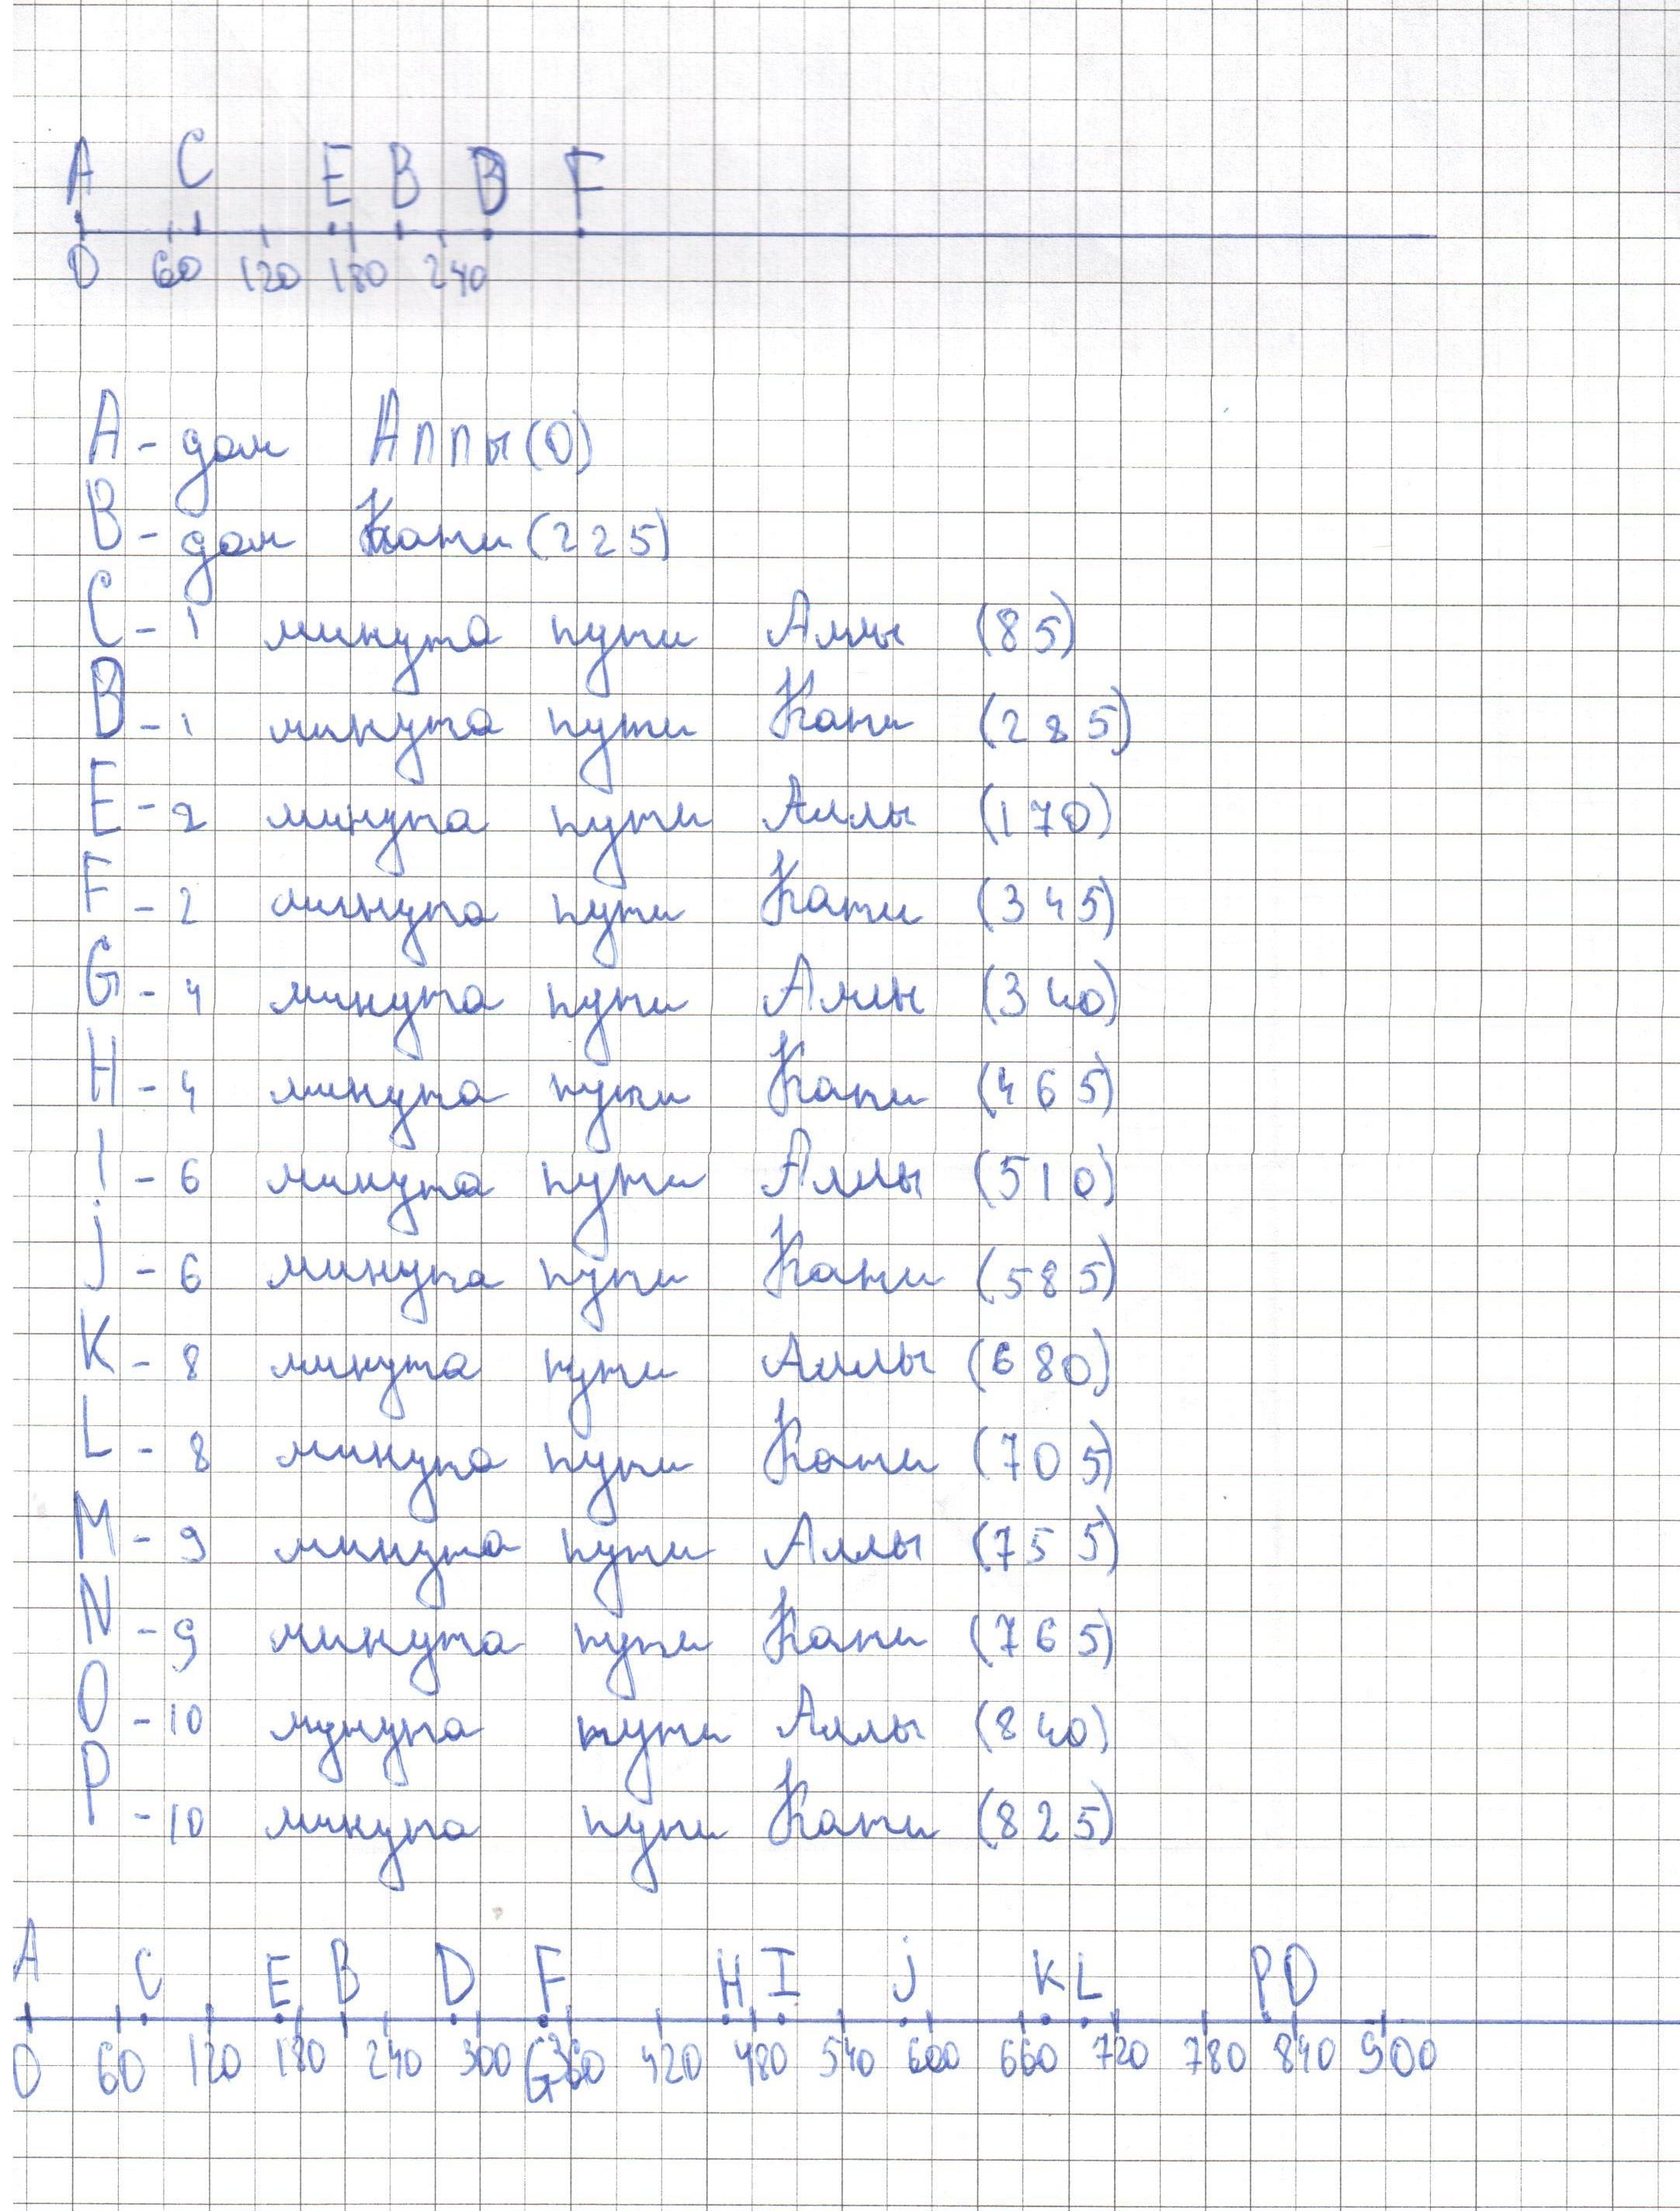 A C E B D F
0 60 120 180 240
A - дом Аллы (0)
B - дом Кати (225)
C - 1 минута пути Аллы (85)
D - 1 минута пути Кати (285)
E - 2 минута пути Аллы (170)
F - 2 минута пути Кати (345)
G - 4 минута пути Аллы (340)
H - 4 минута пути Кати (465)
I - 6 минута пути Аллы (510)
j - 6 минута пути Кати (585)
K - 8 минута пути Аллы (680)
L - 8 минута пути Кати (705)
M - 9 минута пути Аллы (755)
N - 9 минута пути Кати (765)
O - 10 мунута пути Аллы (840)
P - 10 минута пути Кати (825)
A C E B D F H I j K L P O
0 60 120 180 240 300 G 360 420 480 540 600 660 720 780 840 900